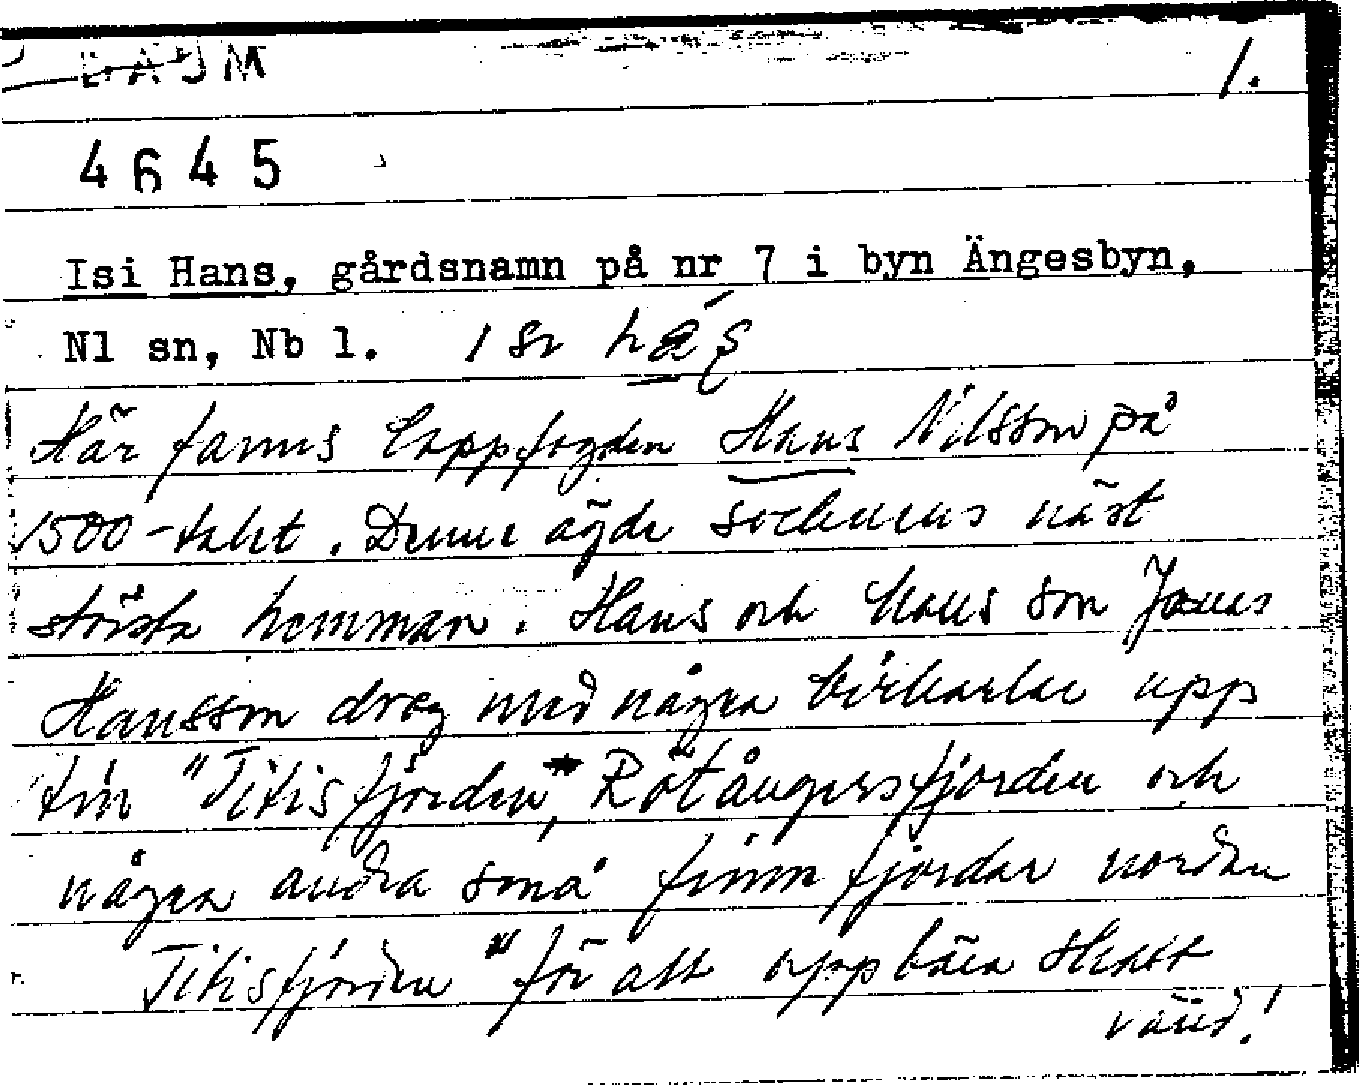 DAUM
1.
4645
Isi Hans, gårdsnamn på nr 7 i byn Ängesbyn,
Nl sn, Nb l.
Här fanns lappfogden Hans Nilsson på
1500-talet. Denne ägde socknens näst
största hemman. Hans och hans son Jöns
Hansson drog med några birkarlar upp
till "Titisfjorden", Rötångersfjorden och
några andra små finn fjordar nordan
Titisfjorden" för att uppbära skatt
vänd!